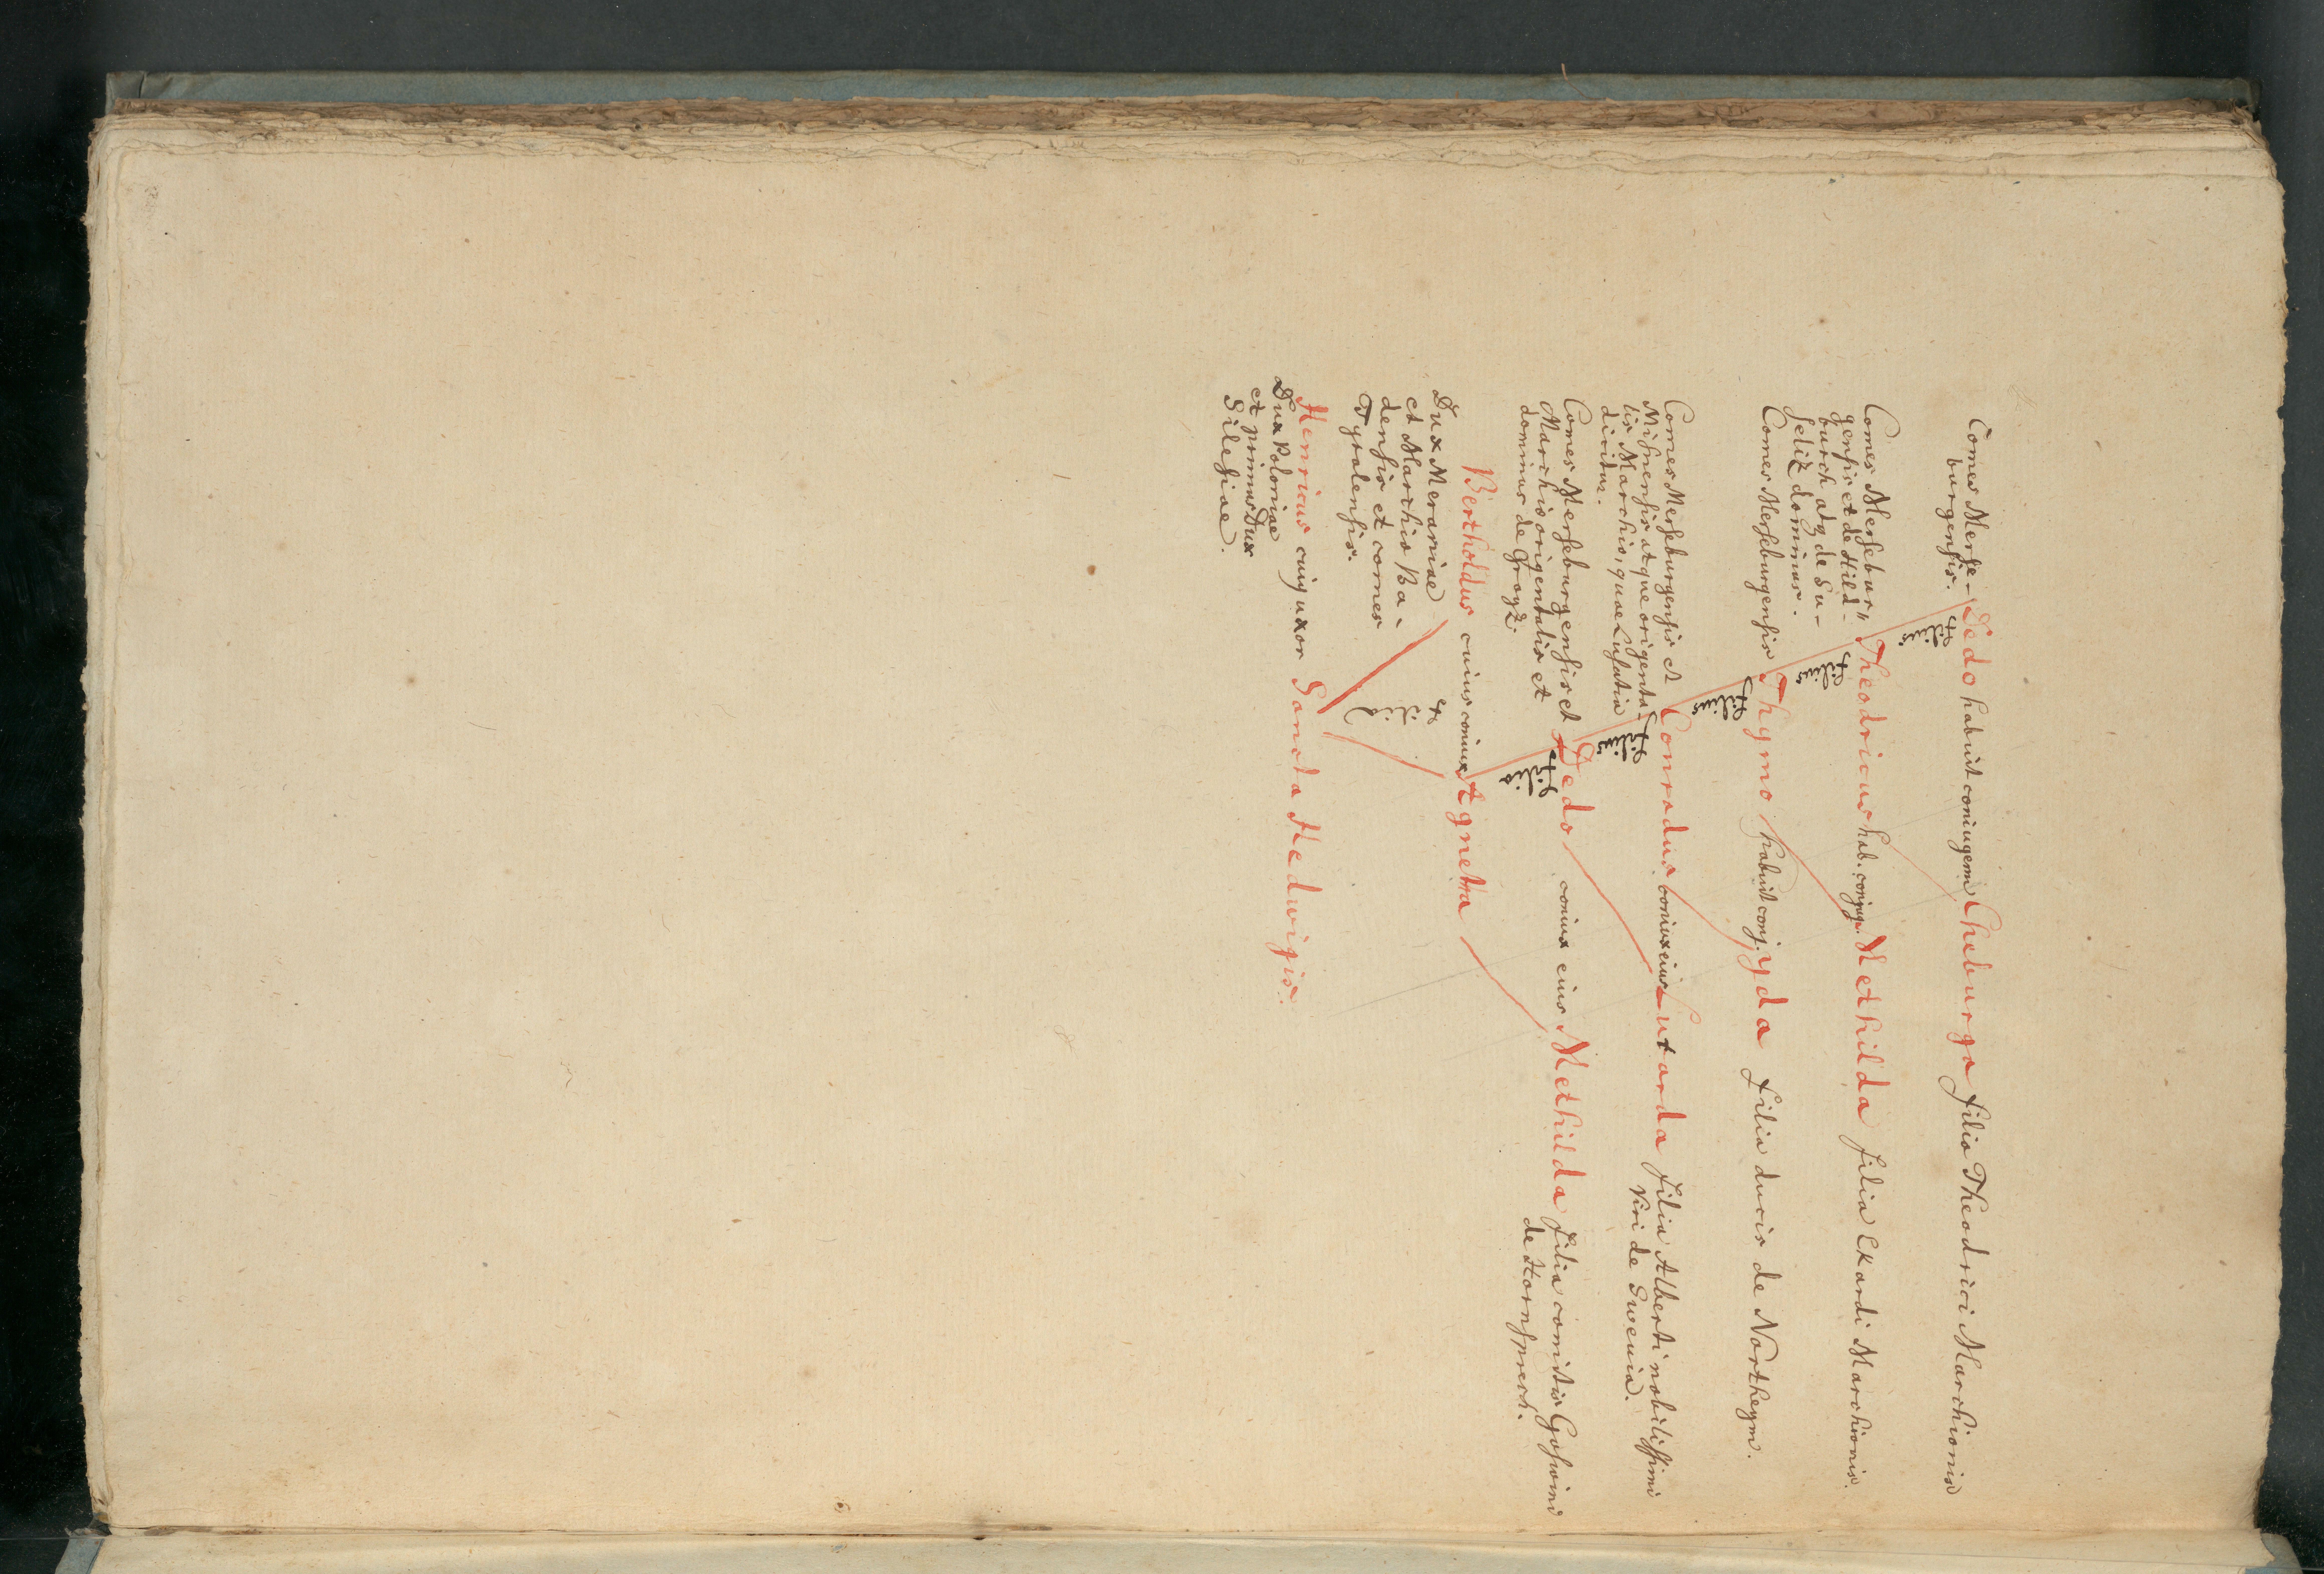 Comes Merse-
burgensis.
Dedo habuit coniugem Cheburga filia Theodrici Marchionis
et filius
Comes Mersebur-
gensis et de Hild-
burch atq de Su-
seliz dominus.
Theodricus hab. conjug. Methilda filia Ekardi Marchionis.
et filius
Comes Merseburgensis Thymo habuit conj. yda filia ducis de Northeym.
et filius
Comes Merseburgensis et
Misnensis atque origenta-
lis Marchio, quae Lusatia
dicitur.
Conradus coniux eius Lutarda filia Alberti nobilissimi
viri de Swevia.
et filius
Comes Merseburgensis et
Marchio origentalis et
dominus de Groyz.
Dedo coniux eius Methilda filia comitis Goswini
de Hornsprech.
et filia
Bertholdus cuius coniux Agnetta
Dux Meraniae
et Marchio Ba-
densis et comes
Tyrolensis.
et
Henricus cuiq uxor Sancta Hedwigis.
Dux Poloniae
et primus Dux
Silesiae.